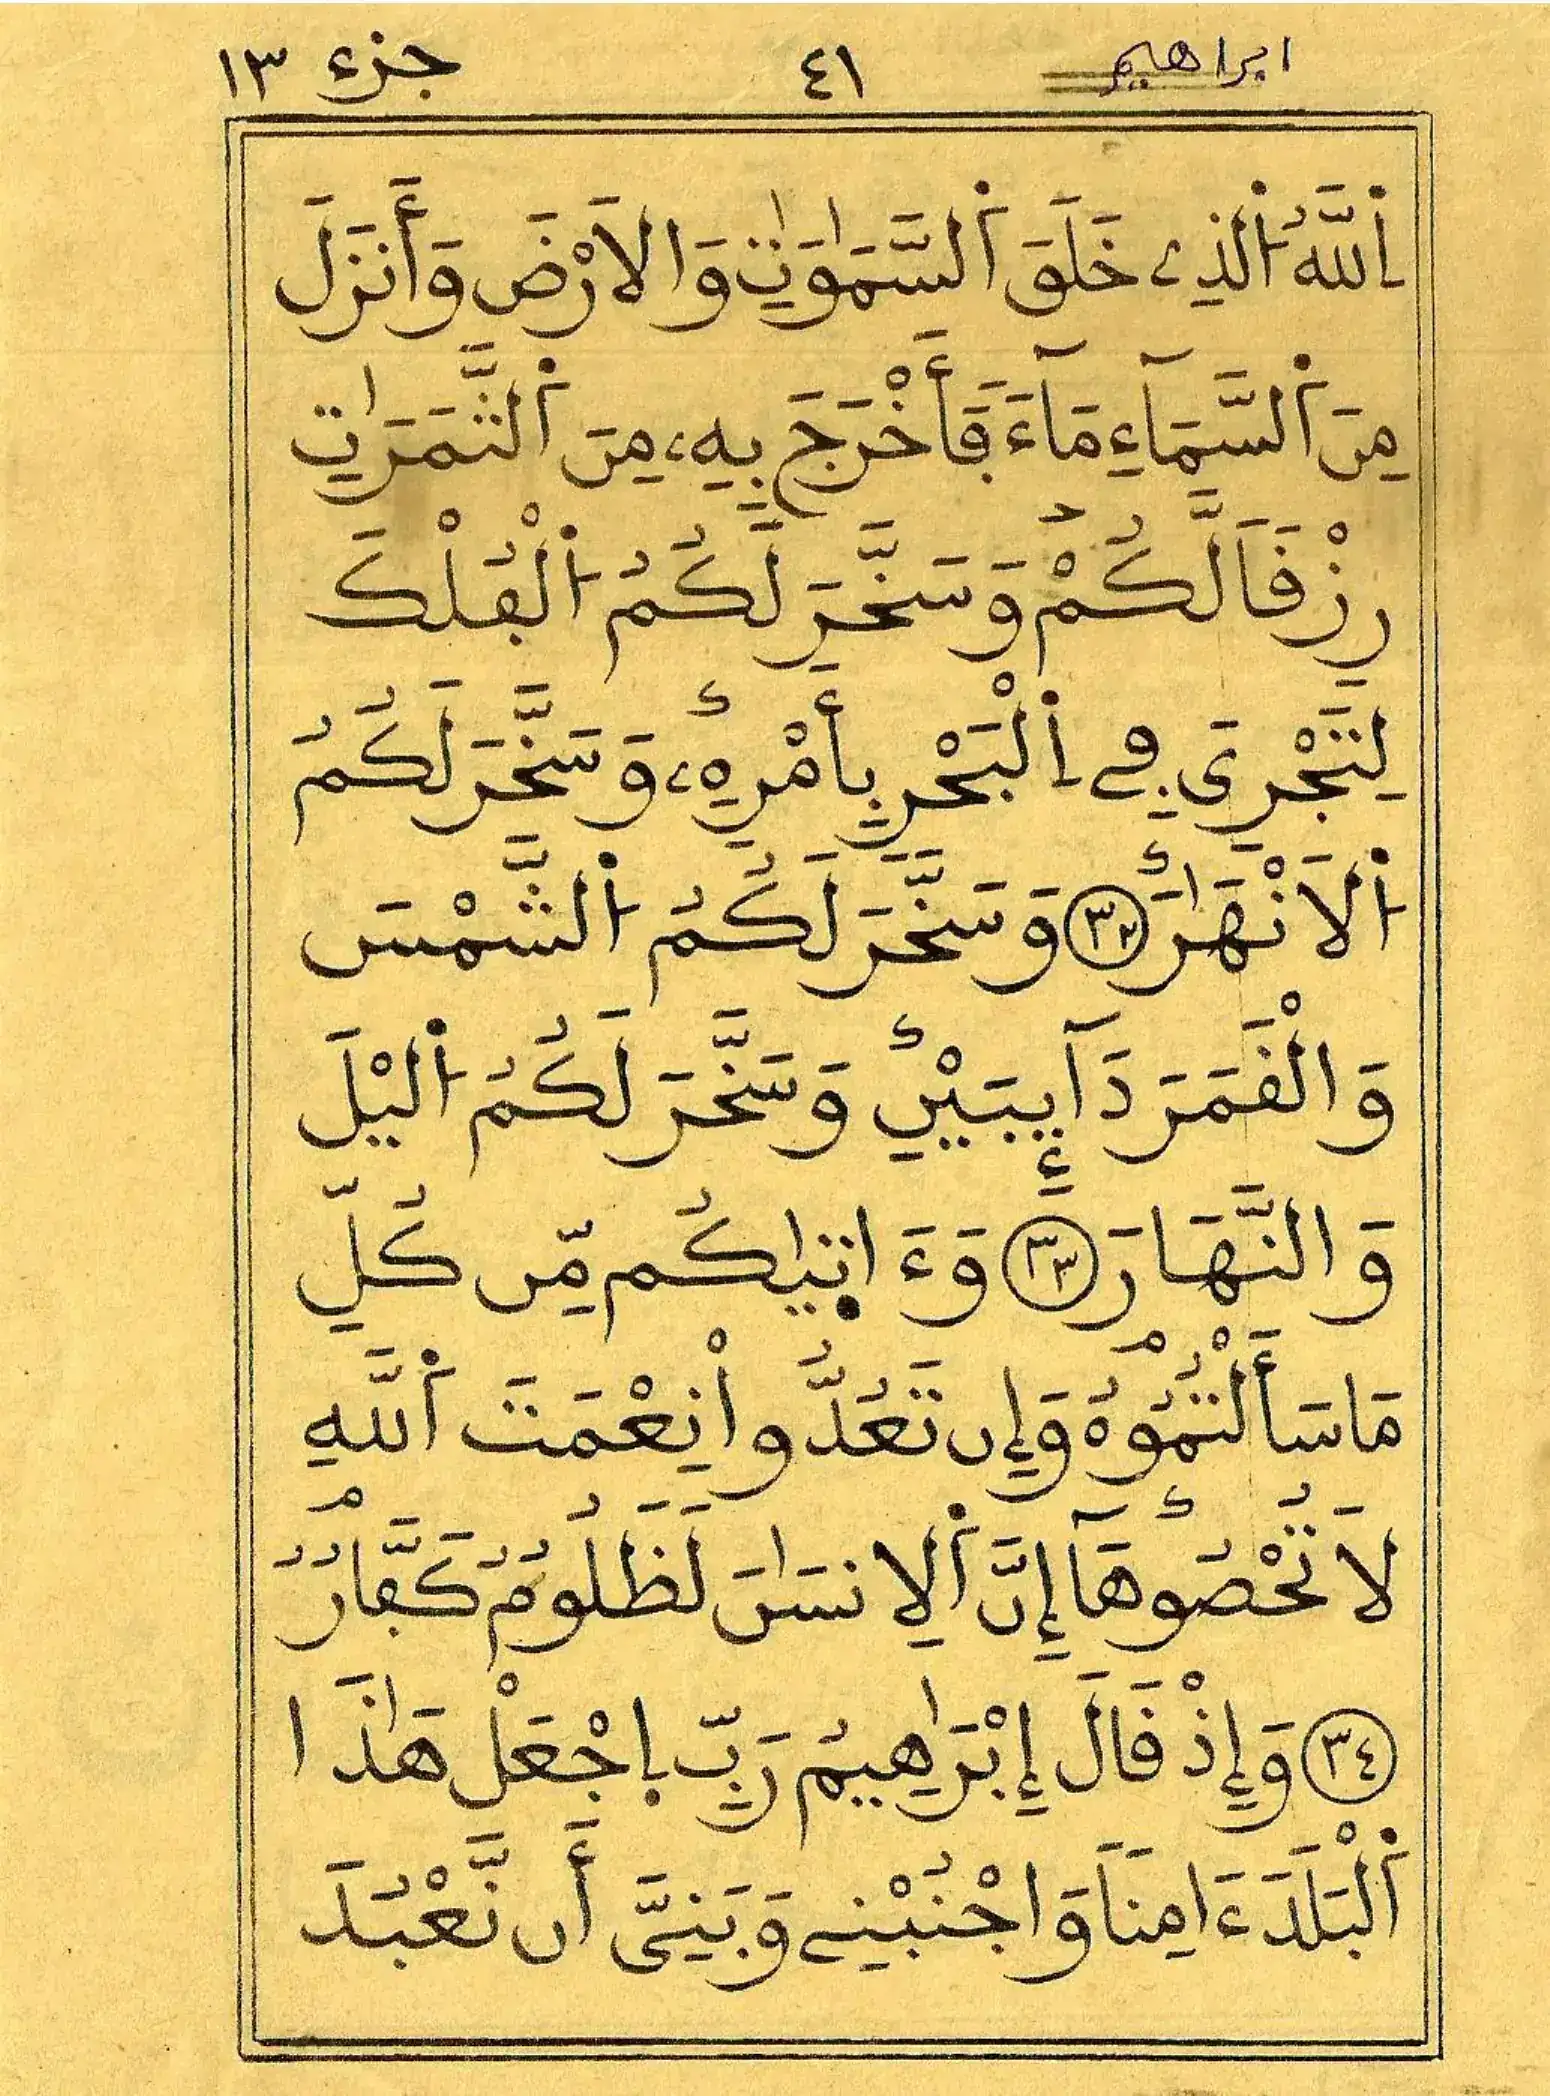 ابراهيم ٤١ جزء ١٣
اَ۬للَّهُ اُ۬لذِے خَلَقَ اَ۬لسَّمَٰوَٰتِ وَالَارْضَ وَأَنزَلَ
مِنَ اَ۬لسَّمَآءِ مَآءٗ فَأَخْرَجَ بِهِۦ مِنَ اَ۬لثَّمَرَٰتِ
رِزْقاٗ لَّكُمْۖ وَسَخَّرَ لَكُمُ اُ۬لْفُلْكَ
لِتَجْرِيَ فِے اِ۬لْبَحْرِ بِأَمْرِهِۦۖ وَسَخَّرَ لَكُمُ
اُ۬لَانْهَٰرَۖ ٣٢ وَسَخَّرَ لَكُمُ اُ۬لشَّمْسَ
وَالْقَمَرَ دَآئِبَيْنِۖ وَسَخَّرَ لَكُمُ اُ۬ليْلَ
وَالنَّهَارَ ٣٣ وَءَاتٜيٰكُم مِّن كُلِّ
مَا سَأَلْتُمُوهُ وَإِن تَعُدُّواْ نِعْمَتَ اَ۬للَّهِ
لَا تُحْصُوهَآۖ إِنَّ اَ۬لِانسَٰنَ لَظَلُومٞ كَفَّارٞ
٣٤ وَإِذْ قَالَ إِبْرَٰهِيمُ رَبِّ اِ۪جْعَلْ هَٰذَا
اَ۬لْبَلَدَ ءَامِناٗ وَاجْنُبْنِے وَبَنِيَّ أَن نَّعْبُدَ